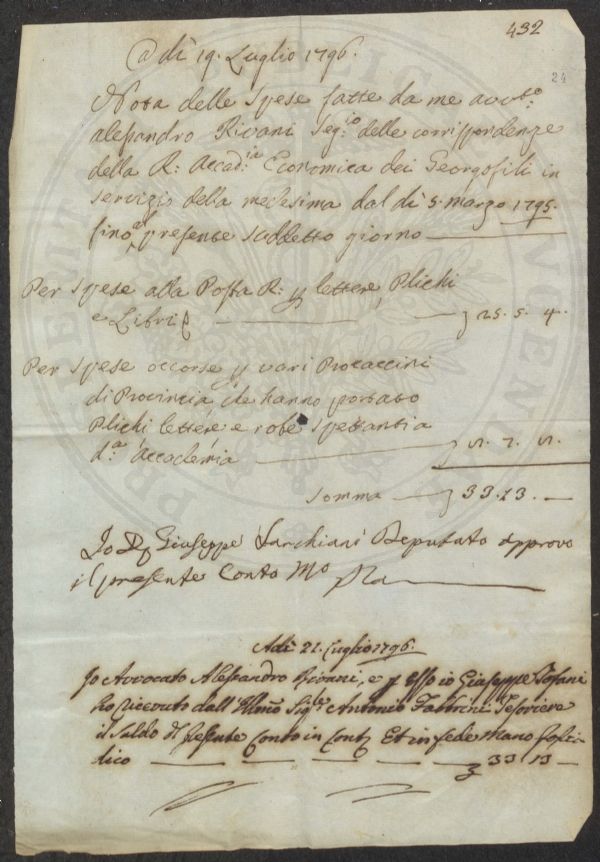 432
24
a dì 19. Luglio 1796.
Nota delle Spese fatte da me avv.to
Alessandro Rivani Seg.rio delle corrispondenze
della R: Accad.ia Economica dei Georgofili in
servizio della medesima dal dì 5. marzo 1795.
fino al presente suddetto giorno
Per spese alla Posta R: p lettere, Plichi
e Libri £ 25. 5. 4.
Per Spese occorse p vari Procaccini
di Provincia che hanno portato
Plichi lettere e robe spettanti a
d.a Accademia
Somma 33.13.
Io Giuseppe Sarchiani Deputato approvo
il presente Conto
Adì 21. Luglio 1796.
Io Avvocato Alessandro Rivani, e p esso io Giuseppe Tofani
ho ricevuto dall' Illmo Sig.re Antonio Fabbrini Tesoriere
il Saldo del presente Conto in Cont.i Et in fede mano pro=
dico 33 13
PUBLICAE
PROSPERITATI